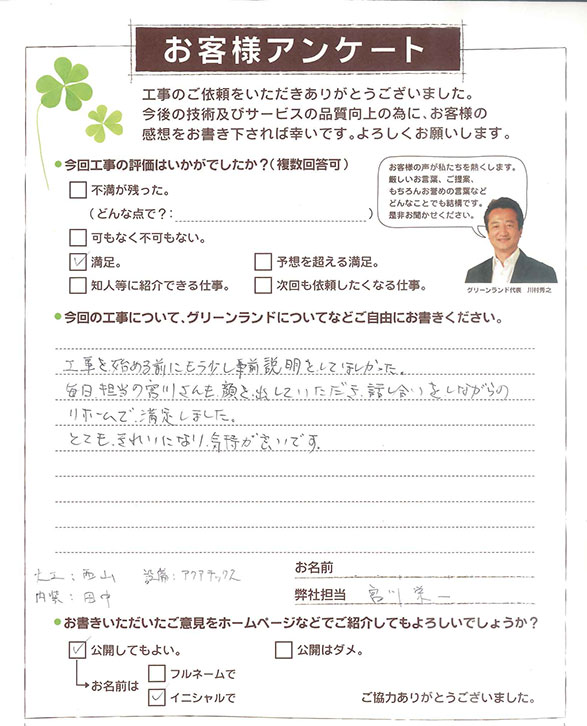 お客様アンケート
工事のご依頼をいただきありがとうございました。
今後の技術及びサービスの品質向上の為に、お客様の
感想をお書き下されば幸いです。よろしくお願いします。
今回工事の評価はいかがでしたか?(複数回答可)
不満が残った。
(どんな点で?: )
可もなく不可もない。
満足。
予想を超える満足。
知人等に紹介できる仕事。
次回も依頼したくなる仕事。
お客様の声が私たちを熱くします。
厳しいお言葉、ご提案、
もちろんお誉めの言葉など
どんなことでも結構です。
是非お聞かせください。
グリーンランド代表 川村秀之
今回の工事について、グリーンランドについてなどご自由にお書きください。
工事を始める前にもう少し事前説明をしてほしかった。
毎日、担当の宮川さんも、顔を出していただき、話し合いをしながらの
リホームで、満足しました。
とても、きれいになり、気持が良いです。
大工:西山 設備:アクアテックス
内装:田中
お名前
弊社担当 宮川 栄一
お書きいただいたご意見をホームページなどでご紹介してもよろしいでしょうか?
公開してもよい。
公開はダメ。
お名前は
フルネームで
イニシャルで
ご協力ありがとうございました。